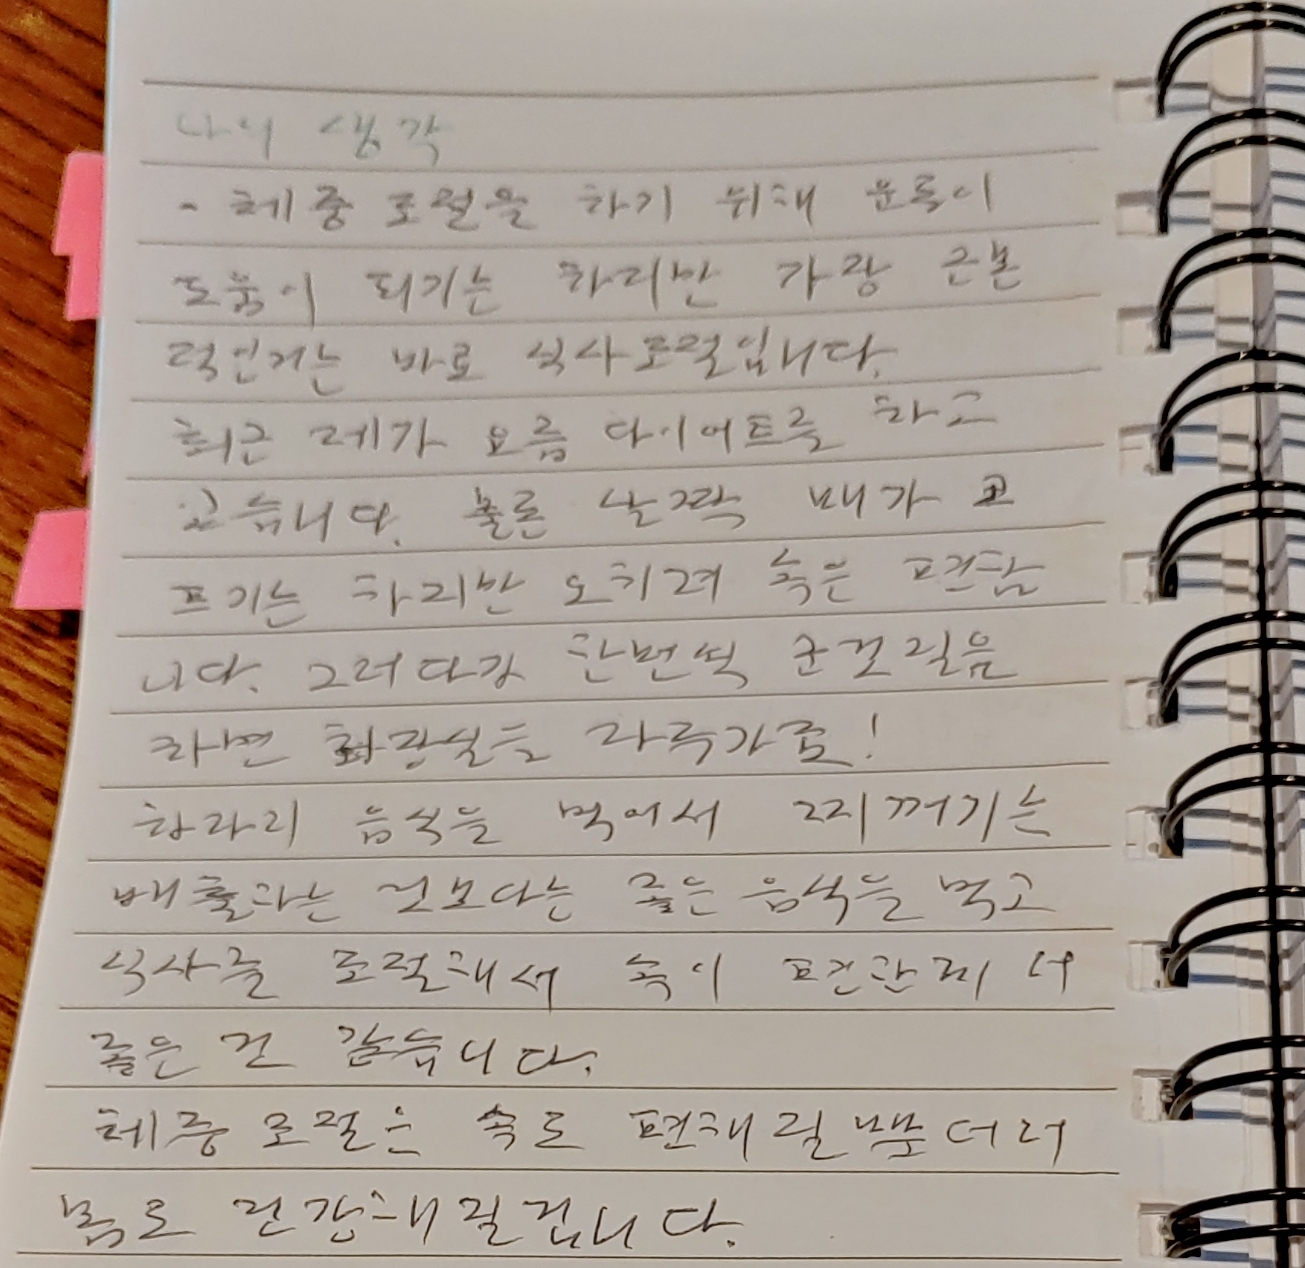 나의 생각
- 체중 조절을 하기 위해 운동이
도움이 되기는 하지만 가장 근본
적인거는 바로 식사조절입니다.
최근 제가 요즘 다이어트를 하고
있습니다. 물론 살짝 배가 고
프기는 하지만 오히려 속은 편합
니다. 그러다가 한번씩 군것질을
하면 화장실을 자주가죠!
차라리 음식을 먹어서 찌꺼기는
배출하는 것보다는 좋은 음식을 먹고
식사를 조절해서 속이 편한게 더
좋은 것 같습니다.
체중 조절은 속도 편해질뿐더러
몸도 건강해질겁니다.